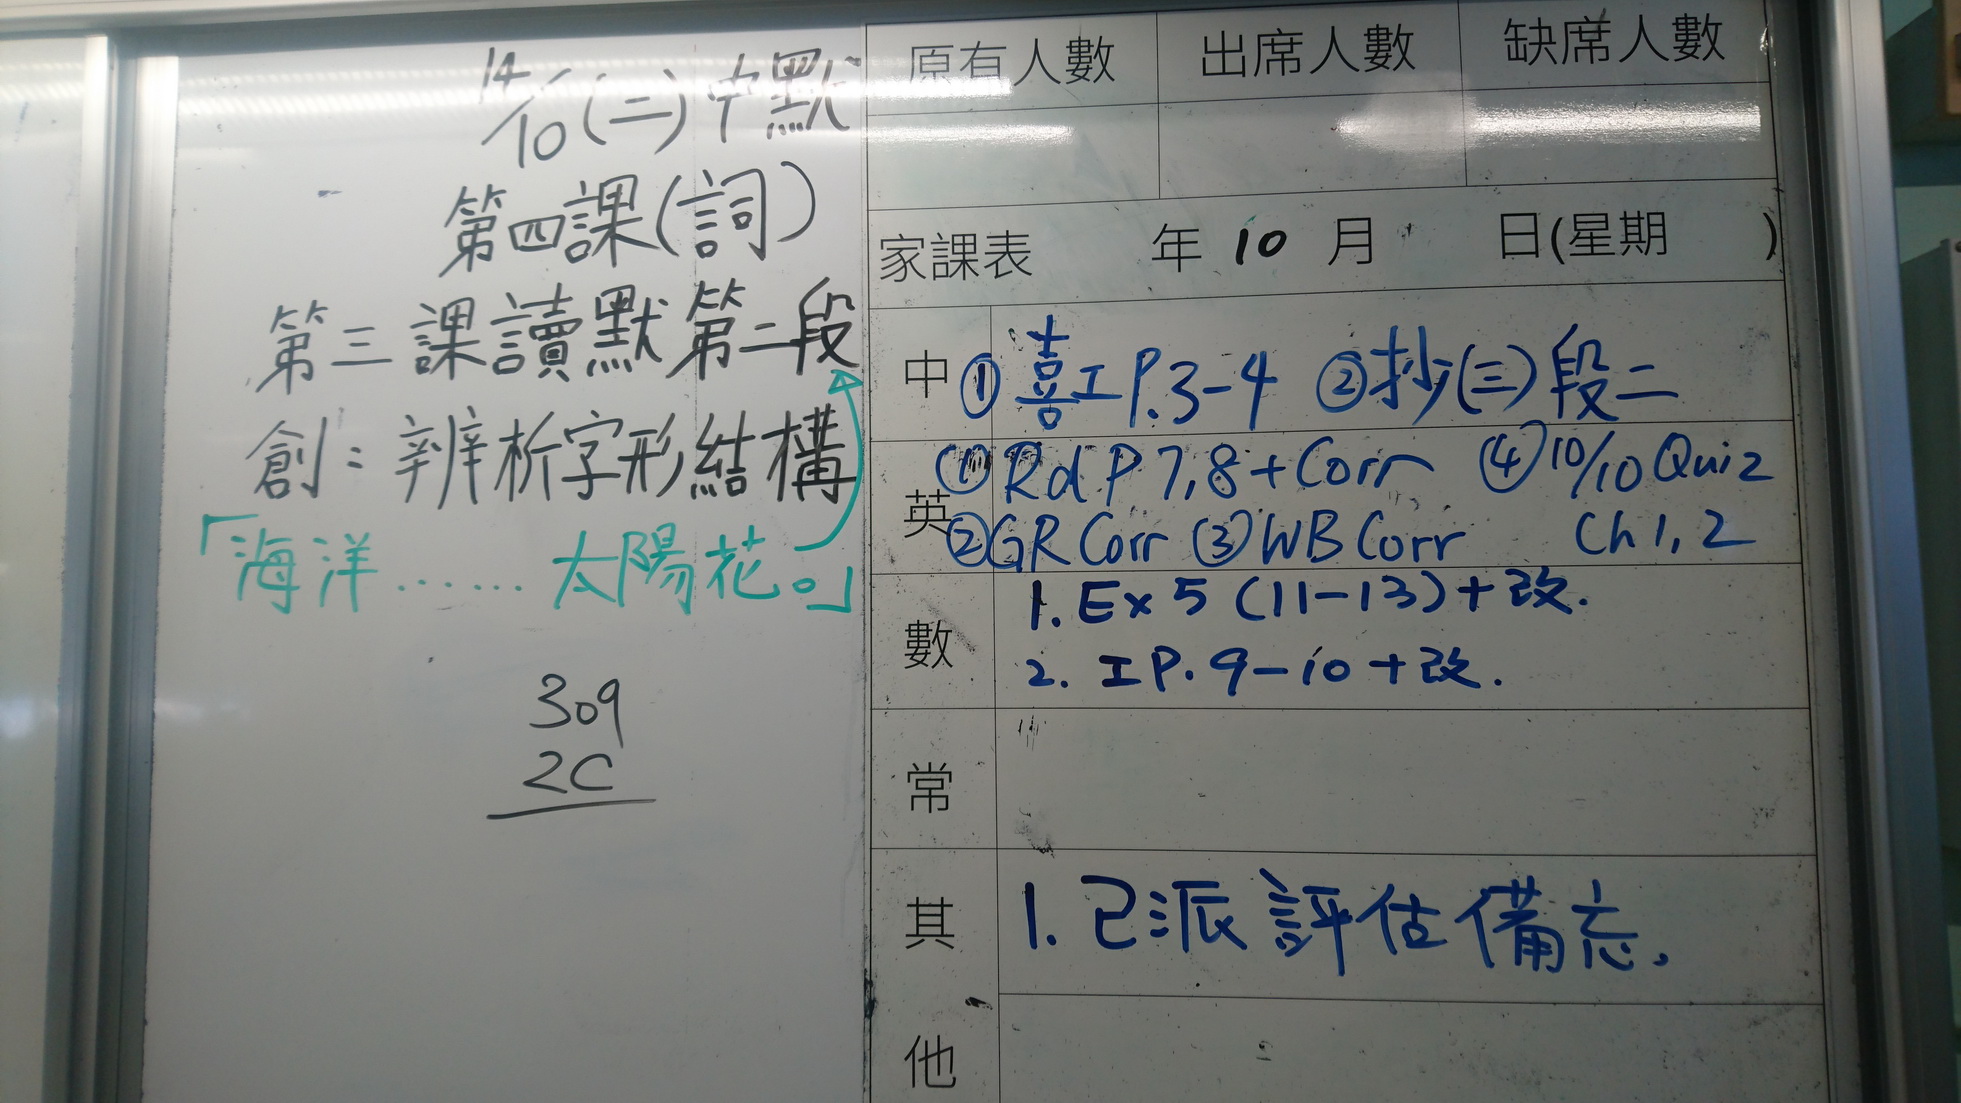 14/10(二)中默
第四課(詞)
第三課讀默第二段
創:辨析字形結構
「海洋……太陽花。」
309
2C
原有人數 出席人數 缺席人數
家課表 年 10 月 日(星期 )
中 ①喜工P.3-4 ②抄(三)段二
英 ①Rd P7,8+Corr ④10/10 Quiz
②GR Corr ③WB Corr Ch1,2
數 1. Ex 5 (11-13)+改.
2. 工P.9-10+改.
常
其他 1. 已派評估備忘.